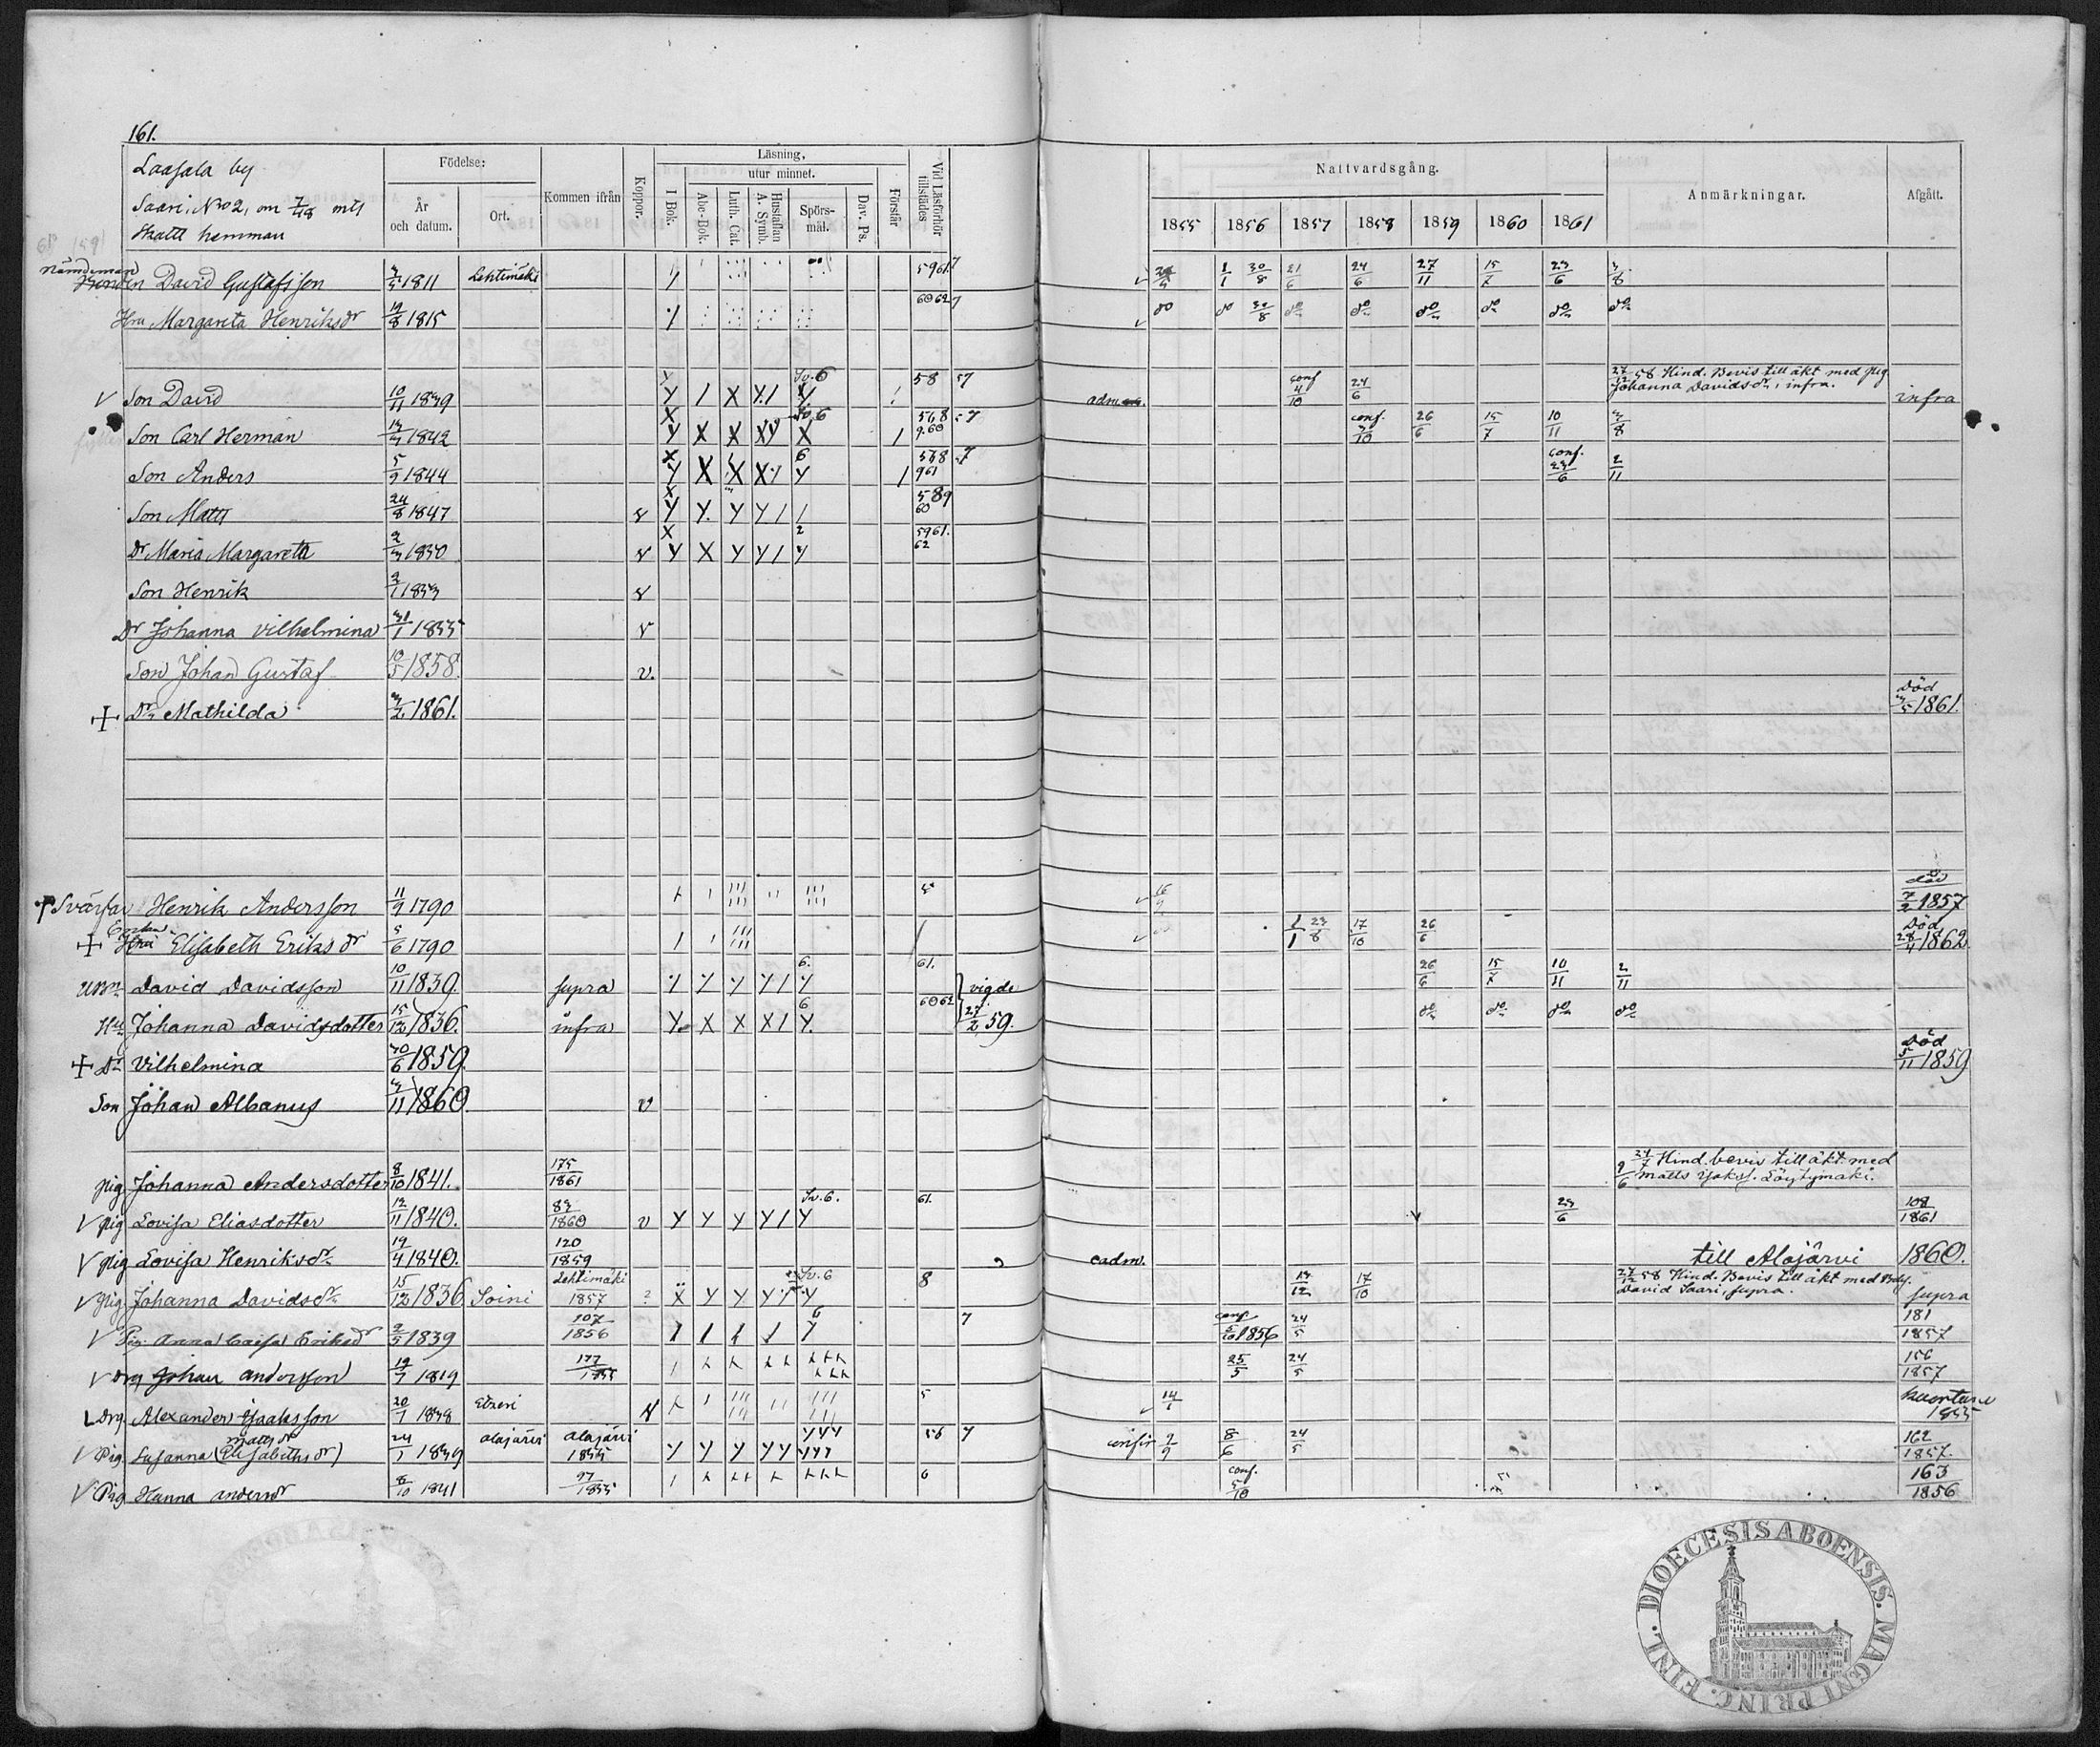 161.
Laasala by
Saari, No 2, om 7/48 mtl
Skatte hemman
Födelse:
År och datum.
Ort.
Kommen ifrån
Koppor.
Läsning,
I Bok.
utur minnet.
Abc-Bok.
Luth. Cat.
Hustaflan A. Symb.
Spörs-mål.
Dav. Ps.
Förstår
Vid Läsförhör tillstädes
Nattvardsgång.
1855 1856 1857 1858 1859 1860 1861
Anmärkningar.
Afgått.
Nämdeman
David Gustafsson 1811 Lehtimäki 5961 7 21/6 24/6 27/11 15/7 23/6 3/8
Hru Margareta Henriksdr 19/8 1815 6062 7 do do 30/8 do do do do do do
V Son David 10/11 1839 Sv. 6 58 57 adm. conf 4/10 24/6 27/12 58 Hind. Bevis till äkt med pig Johanna Davidsdr, infra. infra
Son Carl Herman 1842 568 7 9.60 conf. 3/10 26/6 15/7 10/11 3/8
Son Anders 5/9 1844 6 568 7 961 conf. 23/6 2/11
Son Matts 24/8 1847 589 60
Dr Maria Margareta 2/3 1850 2 5961. 62
Son Henrik 2/1 1853
Dr Johanna Vilhelmina 31/1 1855
Son Johan Gustaf 10/5 1858. v.
+ Dr Mathilda 3/2 1861. Död 3/5 1861.
+ Svärfar Henrik Andersson 11/9 1790 död 7/2 1857
+ Enkan Elisabeth Eriksdr 5/6 1790 1/1 23/8 17/10 26/6 Död 28/4 1862
David Davidsson 10/11 1839. supra 6. 61. vigde 26/6 15/7 10/11 2/11
Hu Johanna Davidsdotter 15/12 1836. infra 6 6062 27/2 59. do do do do
+ Dr Vilhelmina 30/6 1859. Död 5/11 1859
Son Johan Albanus 3/11 1860 v
pig Johanna Andersdotter 8/10 1841. 175/1861 9/6 27/7 Hind. bevis till äkt. med Matts Jakss. Löytymäki.
V pig Lovisa Eliasdotter 12/11 1840. 83/1860 v Sv. 6. 61. 23/6 108/1861
V pig Lovisa Henriksdr 19/4 1840. 120/1859 eadm. till Alajärvi 1860.
V pig. Johanna Davidsdr 15/12 1836 Soini Lehtimäki 1857 Sv. 6 8 13/12 17/10 27/12 58 Hind. Bevis till äkt med David Saari, supra. supra
V Pig. Anna Caisa Eriksdr 2/5 1839 107/1856 6 7 conf 1856 24/5 181/1857
V Drg Johan Andersson 1819 25/5 24/5 156/1857
Drg Alexander Isaksson 20/1 1838 Etseri 5 14/1 Kuortane 1855
V Pig. Susanna (Elisabethsdr) Mattsdr 24/1 1839 Alajärvi Alajärvi 1855 56 7 8/6 24/5 162/1857
V Pig Hanna Andersdr 8/10 1841 97/1855 6 conf. 5/10 163/1856
DIOECESIS ABOENSIS. MAGNI PRINC. FINL.